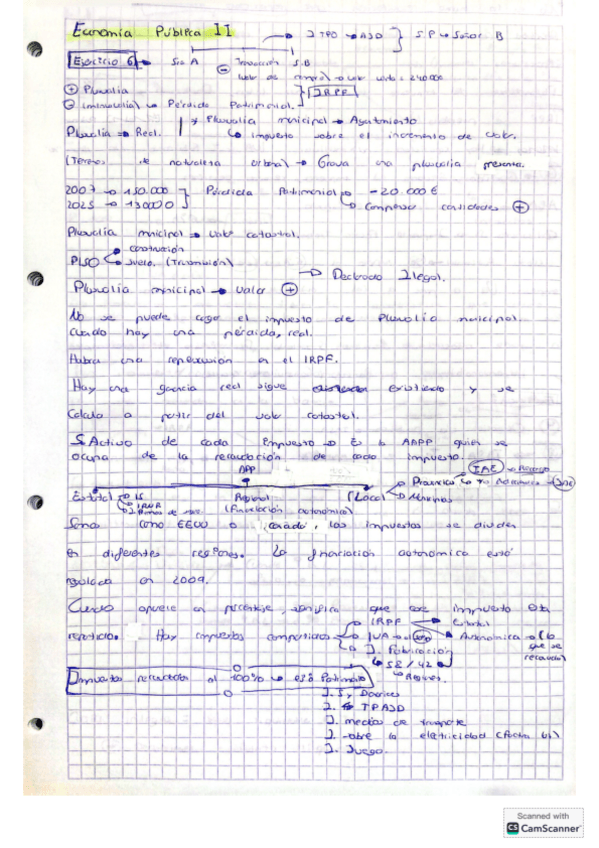 Economía Pública II → I TPO → AJD } S.P → Señor B
Ejercicio 6 → Sra A Transmisión S.B
⊕ Plusvalía
⊖ (minusvalía) → Pérdida Patrimonial. } IRPF
* Plusvalía municipal → Ayuntamiento
Plusvalía → Real. ↳ impuesto sobre el incremento de valor.
(Terreno de naturaleza urbana) → Grava una plusvalía presunta.
2007 → 150.000 } Pérdida Patrimonial → -20.000€
2025 → 130000 ↳ Compensa cantidades ⊕
Plusvalía municipal → valor catastral.
PISO construcción
suelo. (Transmisión)
→ Declarado Ilegal.
Plusvalía municipal → Valor ⊕
No se puede coger el impuesto de Plusvalía municipal
cuando hay una pérdida, real.
Habrá una repercusión en el IRPF.
Hay una ganancia real sigue existiendo y se
Calcula a partir del valor catastral.
S.Activo de cada Impuesto → Es la AAPP quien se
ocupa de la recaudación de cada impuesto.
APP IAE
Estatal → IS Regional (Local → Provincia
IRNR (Financiación autonómica)
Somos como EEUU o Canadá, los impuestos se dividen
en diferentes regiones. La financiación autonómica está
regulada en 2009.
Cuando aparece en porcentaje, significa que ese impuesto está
repartido. Hay impuestos compartidos → IRPF → Estatal
IVA → 50% Autonómica → (lo que se recauda)
I. Fabricación
↳ 58 / 42
↳ Regiones.
Impuestos recaudados al 100% → ISD Patrimonio
I. S y Donaciones
I. TPAJD
I. medios de transporte
I. sobre la electricidad
I. Juego.
Scanned with
CS CamScanner